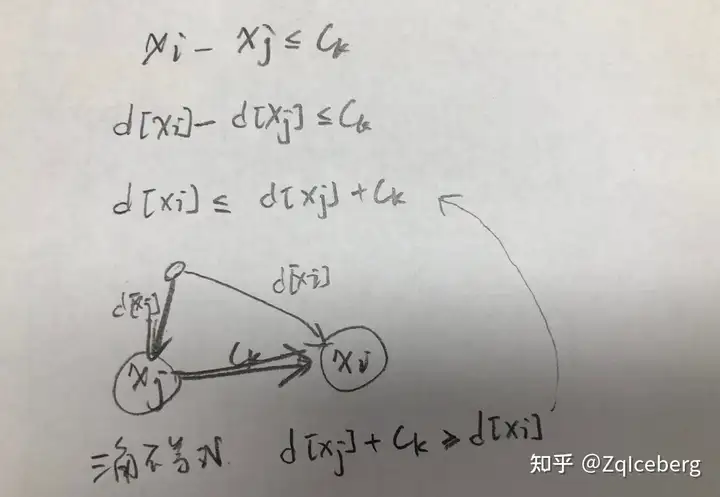 xi - xj ≤ Ck
d[xi] - d[xj] ≤ Ck
d[xi] ≤ d[xj] + Ck
d[xi]
d[xj]
Ck
xj
xi
三角不等式 d[xj] + Ck ≥ d[xi]
知乎 @ZqIceberg